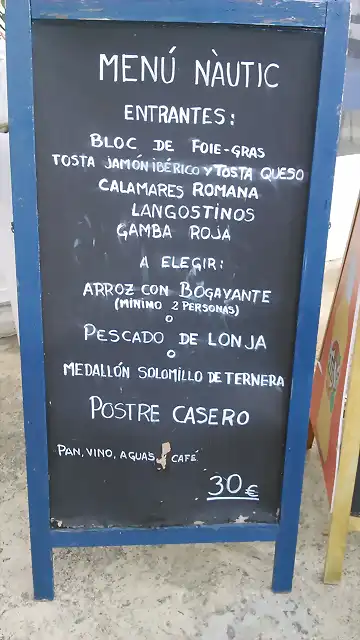 MENÚ NÀUTIC
ENTRANTES:
BLOC DE FOIE-GRAS
TOSTA JAMÓN IBÉRICO Y TOSTA QUESO
CALAMARES ROMANA
LANGOSTINOS
GAMBA ROJA
A ELEGIR:
ARROZ CON BOGAVANTE
(MÍNIMO 2 PERSONAS)
O
PESCADO DE LONJA
O
MEDALLÓN SOLOMILLO DE TERNERA
POSTRE CASERO
PAN, VINO, AGUAS Y CAFÉ
30€